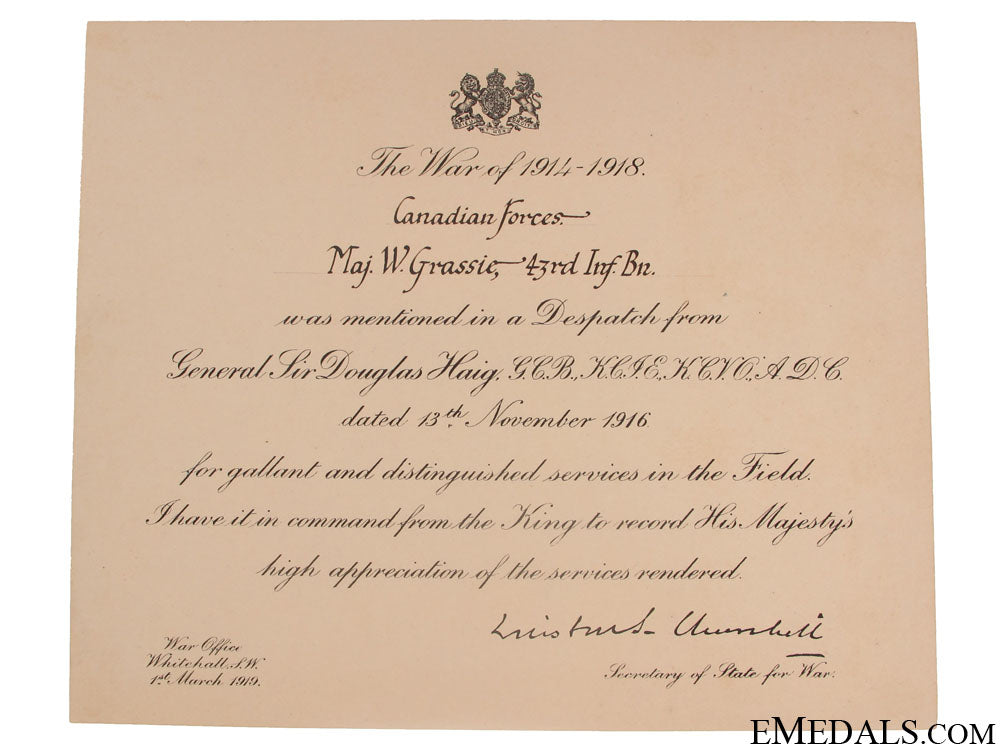 The War of 1914-1918.
Canadian Forces.
Maj. W. Grassie, 43rd Inf. Bn.
was mentioned in a Despatch from
General Sir Douglas Haig, G.C.B., K.C.I.E., K.C.V.O., A.D.C.
dated 13th November 1916
for gallant and distinguished services in the Field.
I have it in command from the King to record His Majesty's
high appreciation of the services rendered.
Winston S. Churchill
War Office
Whitehall, S.W.
1st March 1919.
Secretary of State for War.
EMEDALS.COM